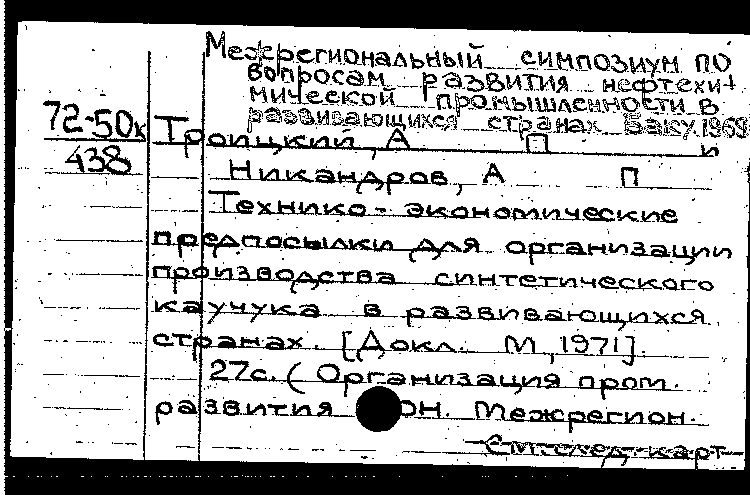 Межрегиональный симпозиум по
вопросам развития нефтехи-
мической промышленности в
развивающихся странах. Баку. 1969
72-50к
438
Троицкий, А П и
Никандров, А П
Технико-экономические
предпосылки для организации
производства синтетического
каучука в развивающихся
странах. [Докл. М, 1971].
27с. (Организация пром.
развития ОН. Межрегион.
См. след. карт